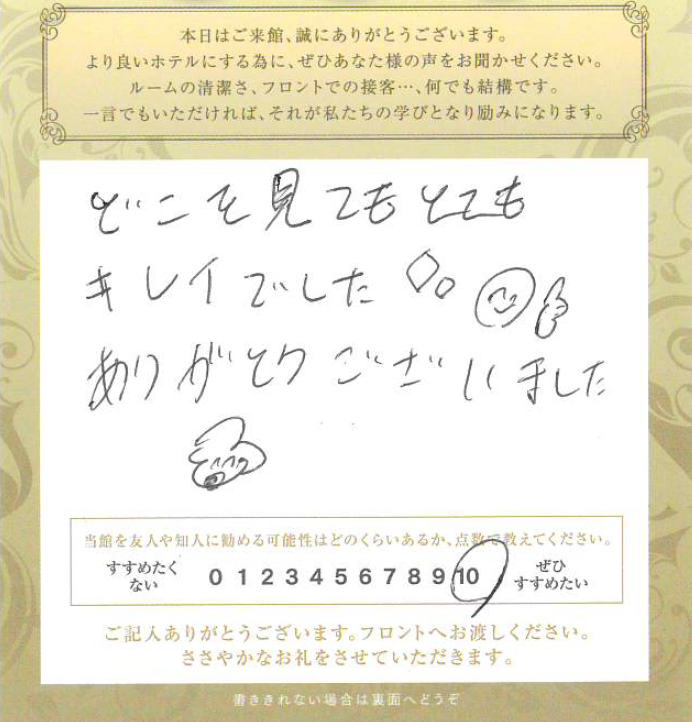 本日はご来館、誠にありがとうございます。
より良いホテルにする為に、ぜひあなた様の声をお聞かせください。
ルームの清潔さ、フロントでの接客…、何でも結構です。
一言でもいただければ、それが私たちの学びとなり励みになります。
どこを見てもとても
キレイでした
ありがとうございました
当館を友人や知人に勧める可能性はどのくらいあるか、点数で教えてください。
すすめたく
ない
0 1 2 3 4 5 6 7 8 9 10
ぜひ
すすめたい
ご記入ありがとうございます。フロントへお渡しください。
ささやかなお礼をさせていただきます。
書ききれない場合は裏面へどうぞ